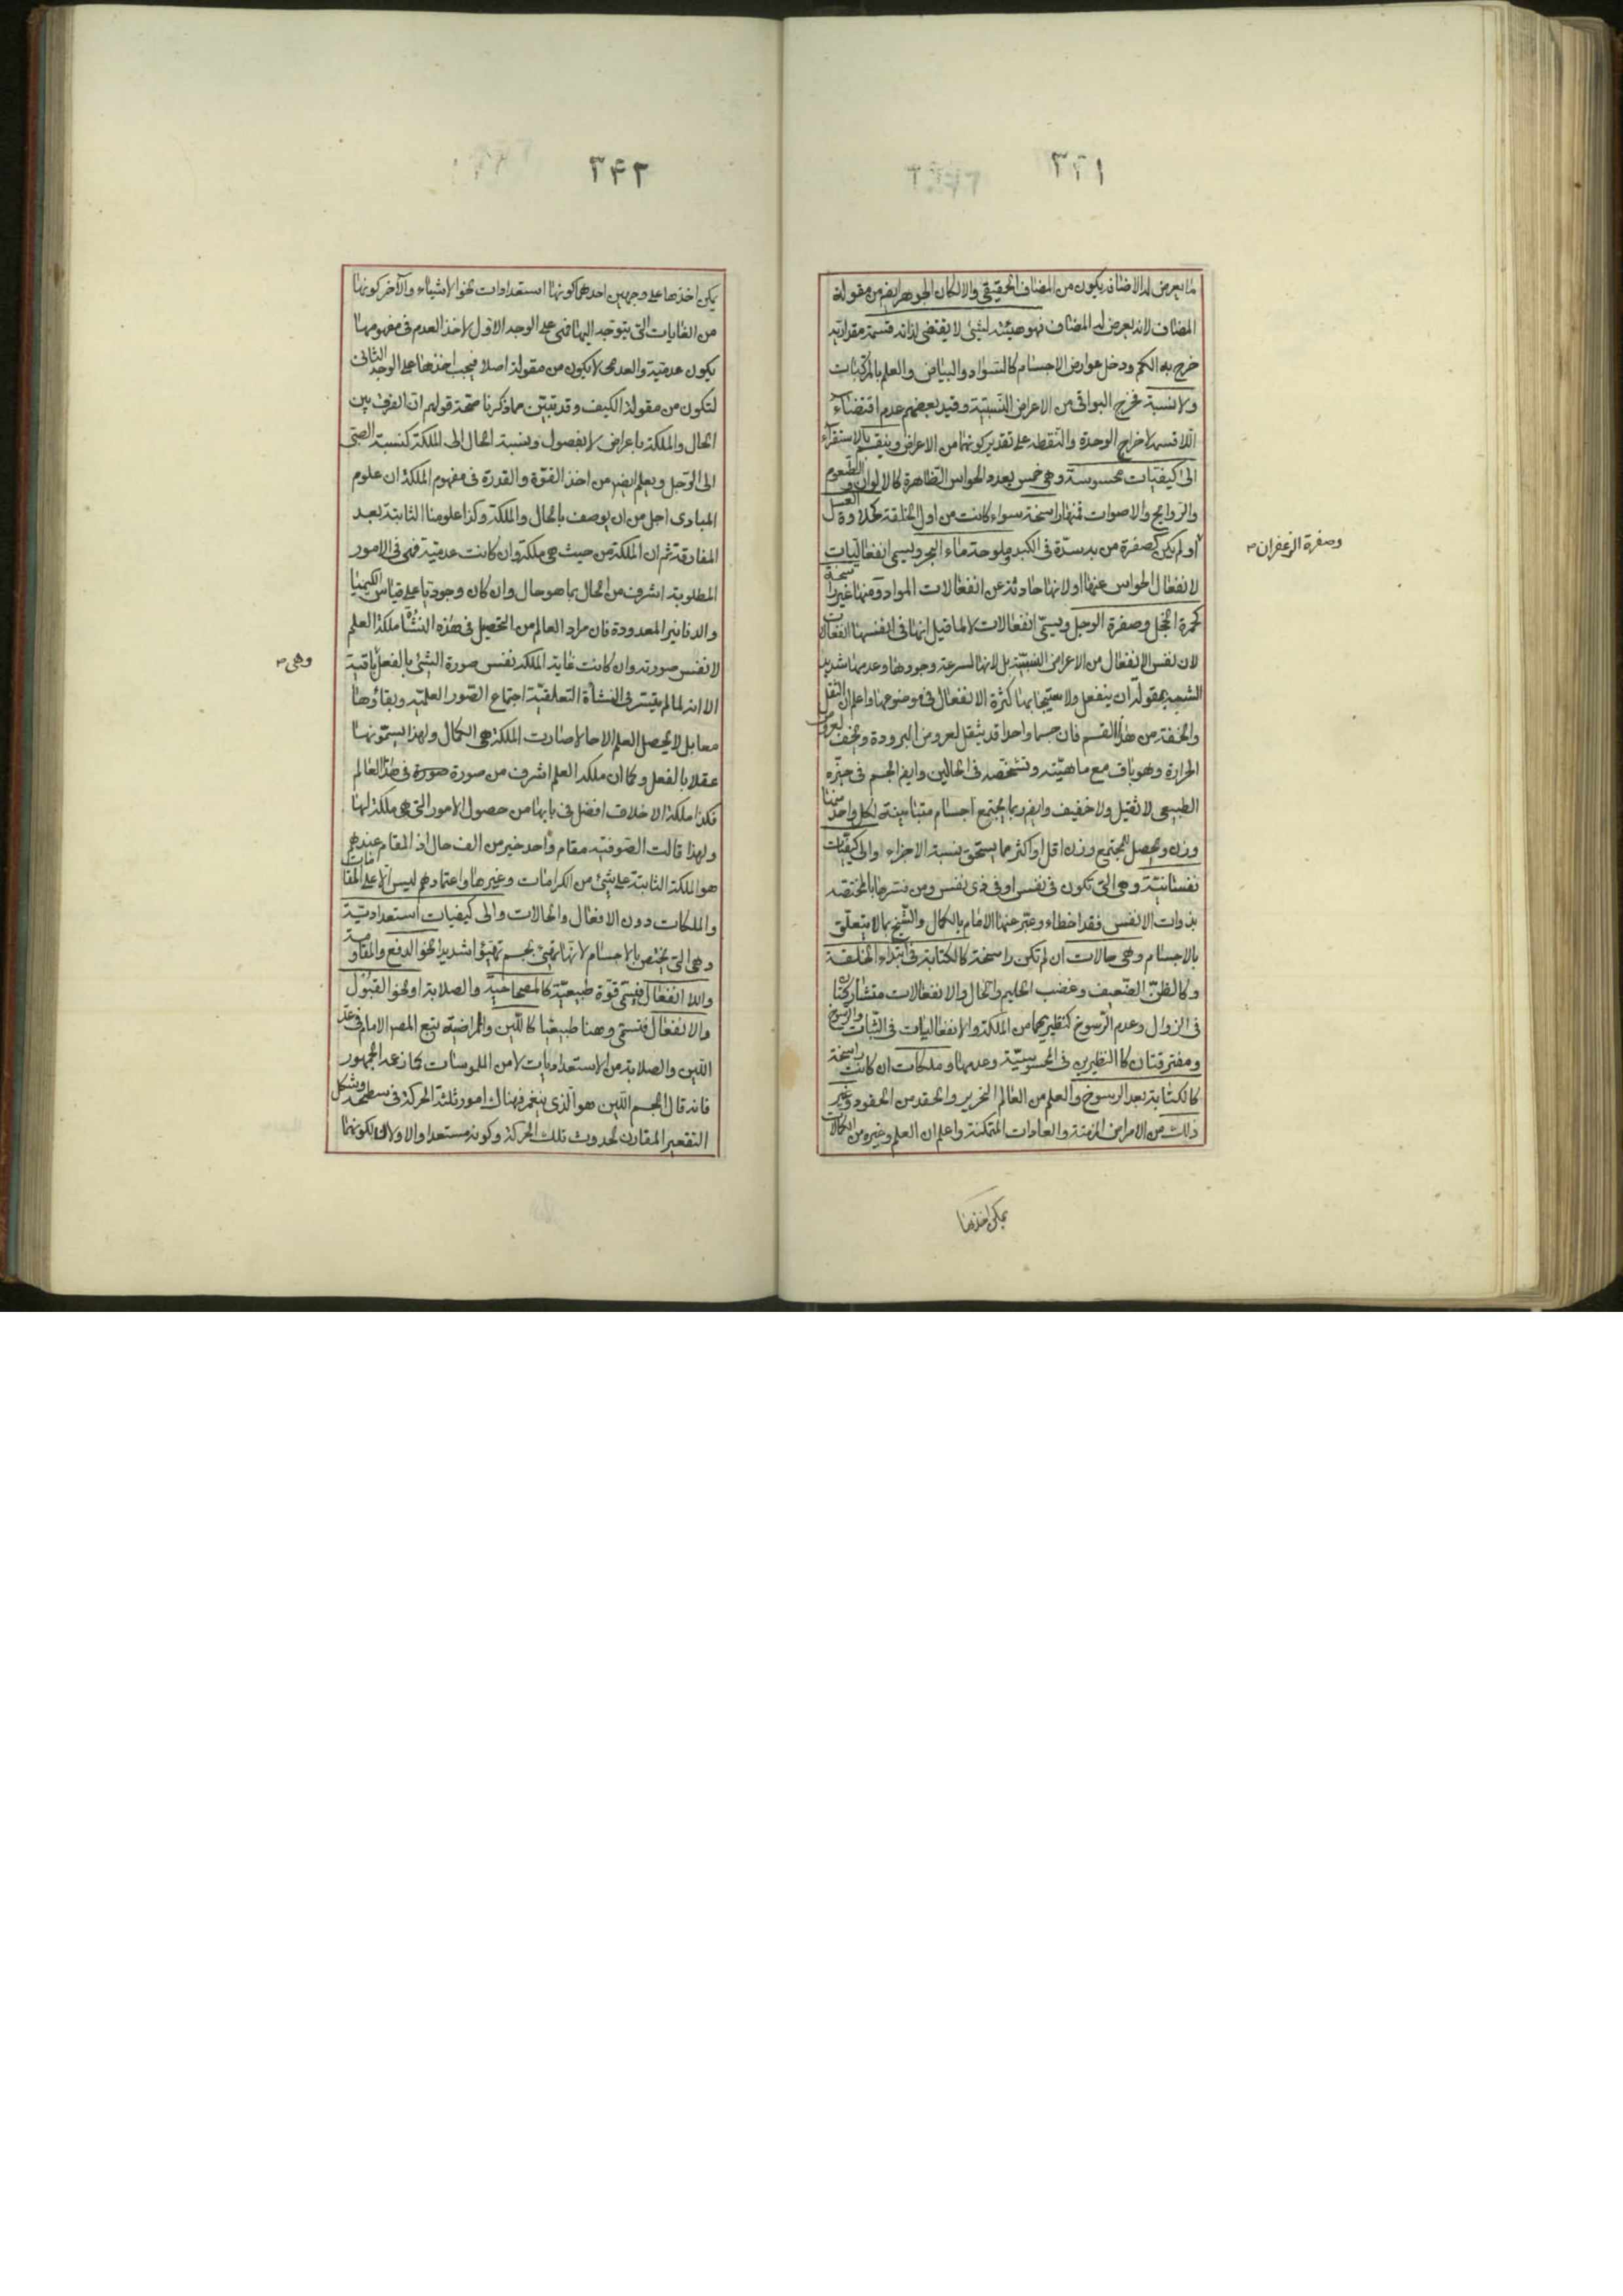 ٣٤١
ما يعرض له الاضافة يكون من المضاف الحقيقى والا لكان الجوهر ايضر من مقولة
المضاف لانه يعرض له المضاف فهو هيئة لشئ لا يقتضى لذاته قسمة مقدارية
خرج به الكم ودخل عوارض الاجسام كالسواد والبياض والعلم بالمركبات
ولا نسبة فخرج البواقى من الاعراض النسبية وقيد بعضهم عدم اقتضاء
اللاقسمة لاخراج الوحدة والنقطة على تقدير كونهما من الاعراض وينقسم بالاستقراء
الى كيفيات محسوسة وهى خمس بعدد الحواس الظاهرة كالالوان والطعوم
والروايح والاصوات فمنها راسخة سواء كانت من اول الخلقة كحلاوة العسل
وصفرة الزعفران
او لم يكن كصفرة من به سدة فى الكبد وملوحة ماء البحر ويسمى انفعاليات
لانفعال الحواس عنها اولا ولانها حادثة عن انفعالات المواد ومنها غير راسخة
كحمرة الخجل وصفرة الوجل ويسمى انفعالات لا لما قيل انها فى انفسها انفعالات
لان نفس الانفعال من الاعراض النسبية بل لانها لسرعة وجودها وعدمها شديد
الشبه بمقولة ان ينفعل ولاستتباعها كثرة الانفعال فى موضوعها واعلم ان الثقل
والخفة من هذا القسم فان جسما واحدا قد يثقل لعروض البرودة ويخف لعروض
الحرارة وهو باق مع ماهيته وتشخصه فى الحالين وايضر الجسم فى حيزه
الطبيعى لا ثقيل ولا خفيف وايضر ربما يجتمع اجسام متباينة لكل واحد منها
وزن ويحصل للمجتمع وزن اقل او اكثر مما يستحق بنسبة الاجزاء والى كيفيات
نفسانية وهى التى تكون فى نفس او فى ذى نفس ومن فسرها بالمختصة
بذوات الانفس فقد اخطاء وعبر عنها الامام بالكمال والشيخ بما لا يتعلق
بالاجسام وهى حالات ان لم تكن راسخة كالكتابة فى ابتداء الخلقة
وكالظن الضعيف وغضب الحليم والحال والانفعالات متشاركتان
فى الزوال وعدم الرسوخ كنظيريهما من الملكة والانفعاليات فى الثبات والرسوخ
ومفترقتان كالنظيرين فى المحسوسية وعدمها وملكات ان كانت راسخة
كالكتابة بعد الرسوخ والعلم من العالم النحرير والحقد من الحقود وغير
ذلك من الامراض المزمنة والعادات المتمكنة واعلم ان العلم وغيره من الكمالات
يمكن اخذها
٣٤٢
يمكن اخذها على وجهين احدهما كونها استعدادات نحو الاشياء والآخر كونها
من الغايات التى يتوجه اليها فهى على الوجه الاول لاخذ العدم فى مفهومها
يكون عدمية والعدمى لا يكون من مقولة اصلا فيجب اخذها على الوجه الثانى
لتكون من مقولة الكيف وقد تبين مما ذكرنا صحة قولهم ان الفرق بين
الحال والملكة باعراض لا بفصول ونسبة الحال الى الملكة كنسبة الصبى
الى الرجل ويعلم ايضر من اخذ القوة والقدرة فى مفهوم الملكة ان علوم
المبادى اجل من ان يوصف بالحال والملكة وكذا علومنا الثابتة بعد
المفارقة ثم ان الملكة من حيث هى ملكة وان كانت عدمية فهى فى الامور
المطلوبة اشرف من الحال بما هو حال وان كان وجوديا على قياس الكيميا
والدنانير المعدودة فان مراد العالم من التحصيل فى هذه النشأة ملكة العلم
لا نفس صورته وان كانت غاية الملكة نفس صورة الشئ بالفعل باقية
وهى
الا انه لما لم يتيسر فى النشأة التعلقية اجتماع الصور العلمية وبقاؤها
معا بل لا يحصل العلم الا حالا صارت الملكة هى الكمال ولهذا يسمونها
عقلا بالفعل وكما ان ملكة العلم اشرف من صورة صورة فى هذا العالم
فكذا ملكة الاخلاق افضل فى بابها من حصول الامور التى هى ملكة لها
ولهذا قالت الصوفية مقام واحد خير من الف حال اذ المقام عندهم
هو الملكة الثابتة على شئ من الكرامات وغيرها واعتمادهم ليس الا على المقامات
والملكات دون الافعال والحالات والى كيفيات استعدادية
وهى التى يختص بالاجسام لانها تهيئ بجسم تهيؤا شديدا نحو الدفع والمقاومة
واللا انفعال فيسمى قوة طبيعية كالمصحاحية والصلابة او نحو القبول
والانفعال فتسمى وهنا طبيعيا كاللين والممراضية تبع المصر الامام فى عد
اللين والصلابة من الاستعداديات لا من الملموسات كما زعمه الجمهور
فانه قال الجسم اللين هو الذى ينغمز فهناك امور ثلثة الحركة فى سطحه وشكل
التقعير المقارن لحدوث تلك الحركة وكونه مستعدا والاولان لكونهما